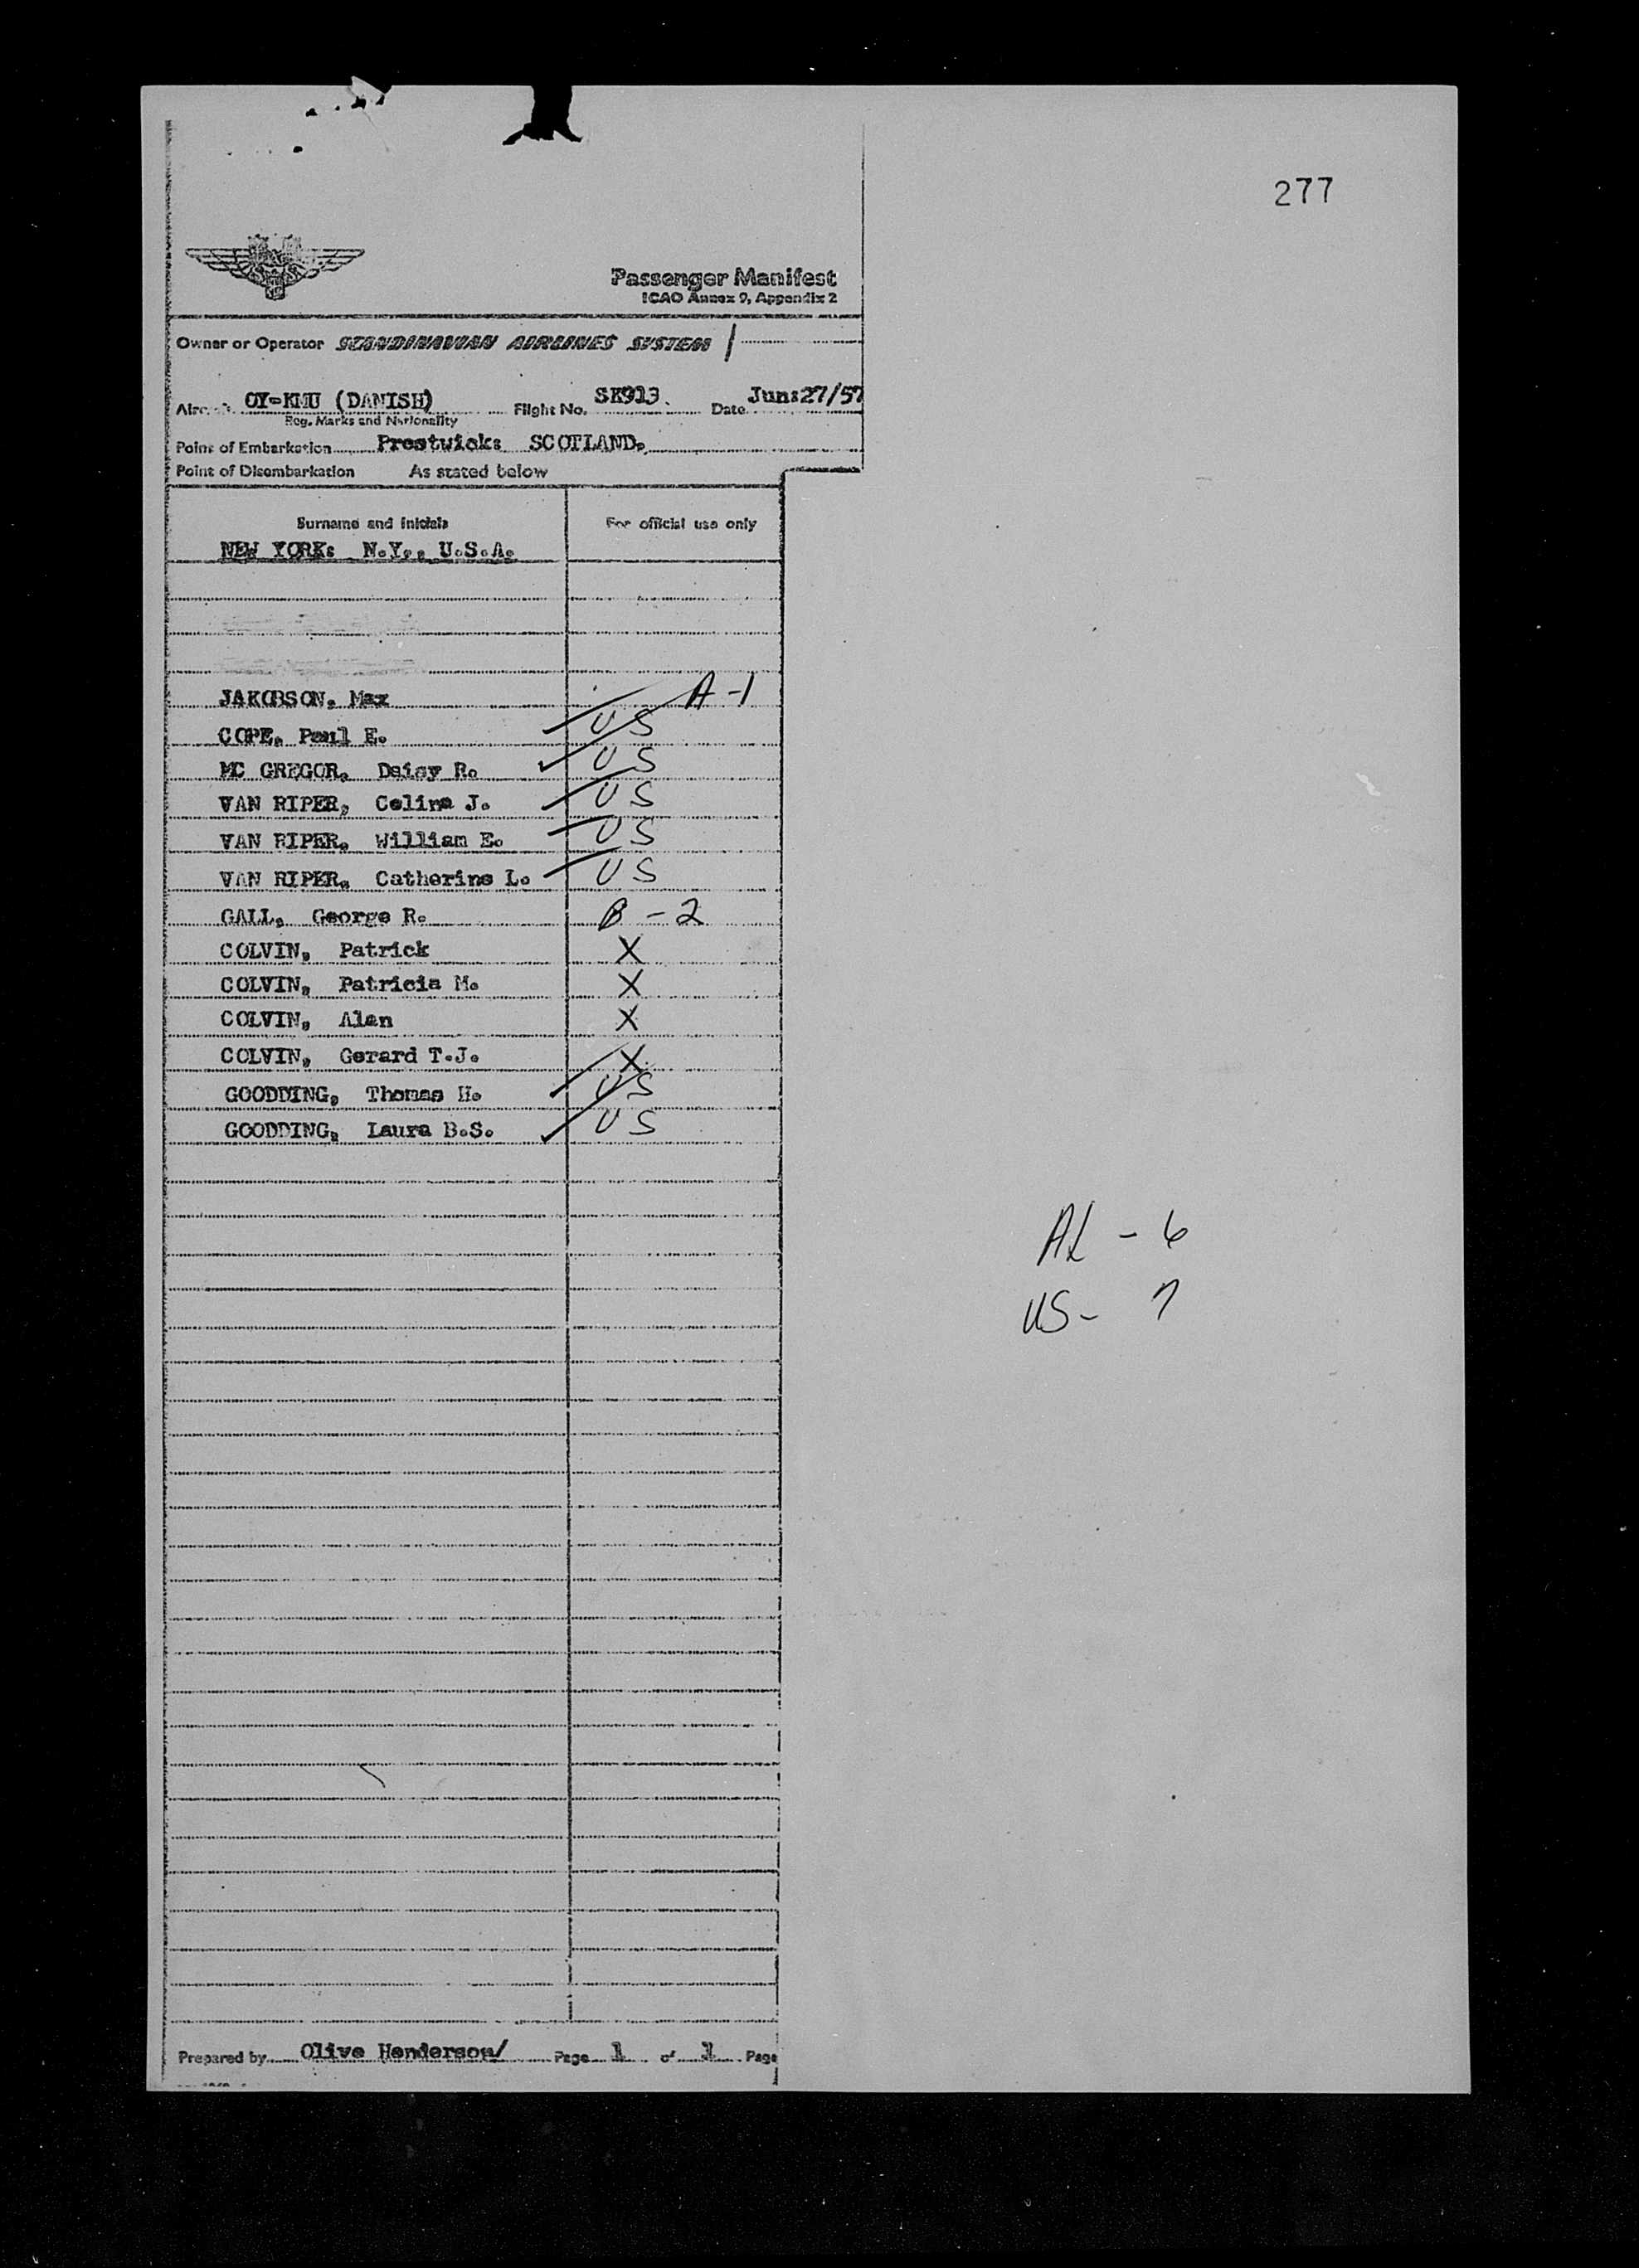 277
Passenger Manifest
ICAO Annex 9, Appendix 2
Owner or Operator SCANDINAVIAN AIRLINES SYSTEM /
Aircraft OY-KMU (DANISH) Flight No. SK913. Date Jun:27/57
Reg. Marks and Nationality
Point of Embarkation Prestwick: SCOTLAND.
Point of Disembarkation As stated below
Surname and Initials For official use only
NEW YORK: N.Y., U.S.A.
JAKOBSON, Max A-1
COPE, Paul E. US
MC GREGOR, Daisy R. US
VAN RIPER, Celina J. US
VAN RIPER, William E. US
VAN RIPER, Catherine L. US
GALL, George R. B-2
COLVIN, Patrick X
COLVIN, Patricia M. X
COLVIN, Alan X
COLVIN, Gerard T.J. X
GOODDING, Thomas H. US
GOODDING, Laura B.S. US
AL - 6
US - 7
Prepared by Olive Henderson/ Page 1 of 1 Page